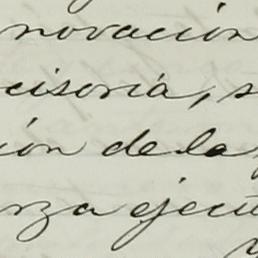 novación
cisoria, s
ión de la
rza ejecu